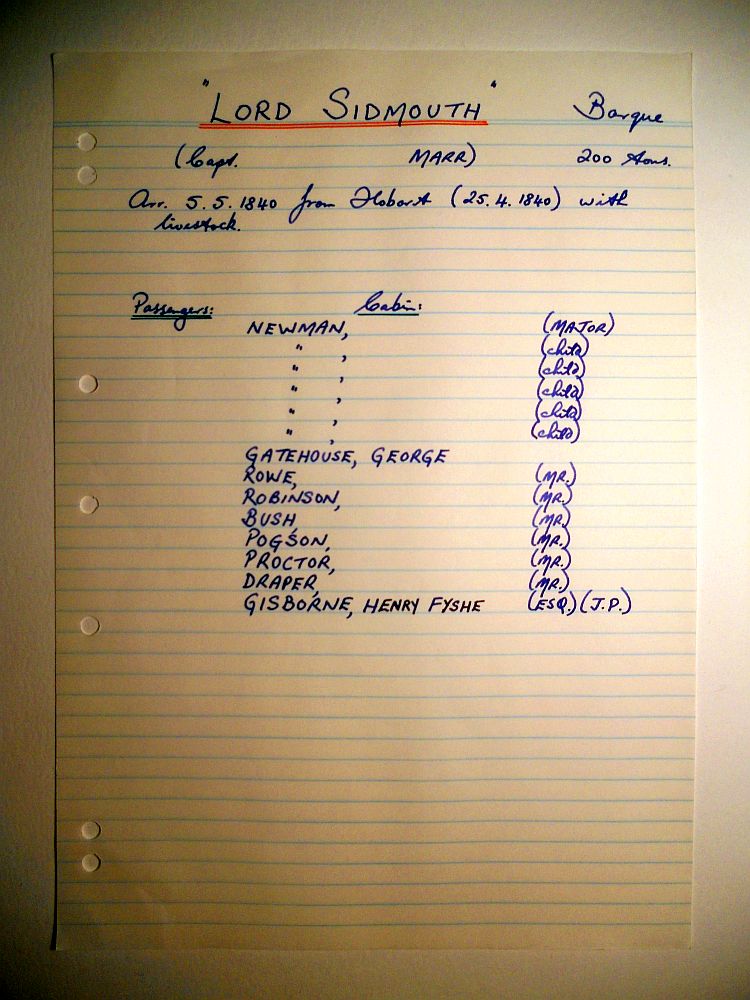 "LORD SIDMOUTH" Barque
(Capt. MARR) 200 tons.
Arr. 5.5.1840 from Hobart (25.4.1840) with
livestock.
Passengers: Cabin:
NEWMAN, (MAJOR)
" , (child)
" , (child)
" , (child)
" , (child)
" , (child)
GATEHOUSE, GEORGE
ROWE, (MR.)
ROBINSON, (MR.)
BUSH, (MR.)
POGSON, (MR.)
PROCTOR, (MR.)
DRAPER, (MR.)
GISBORNE, HENRY FYSHE (ESQ.) (J.P.)